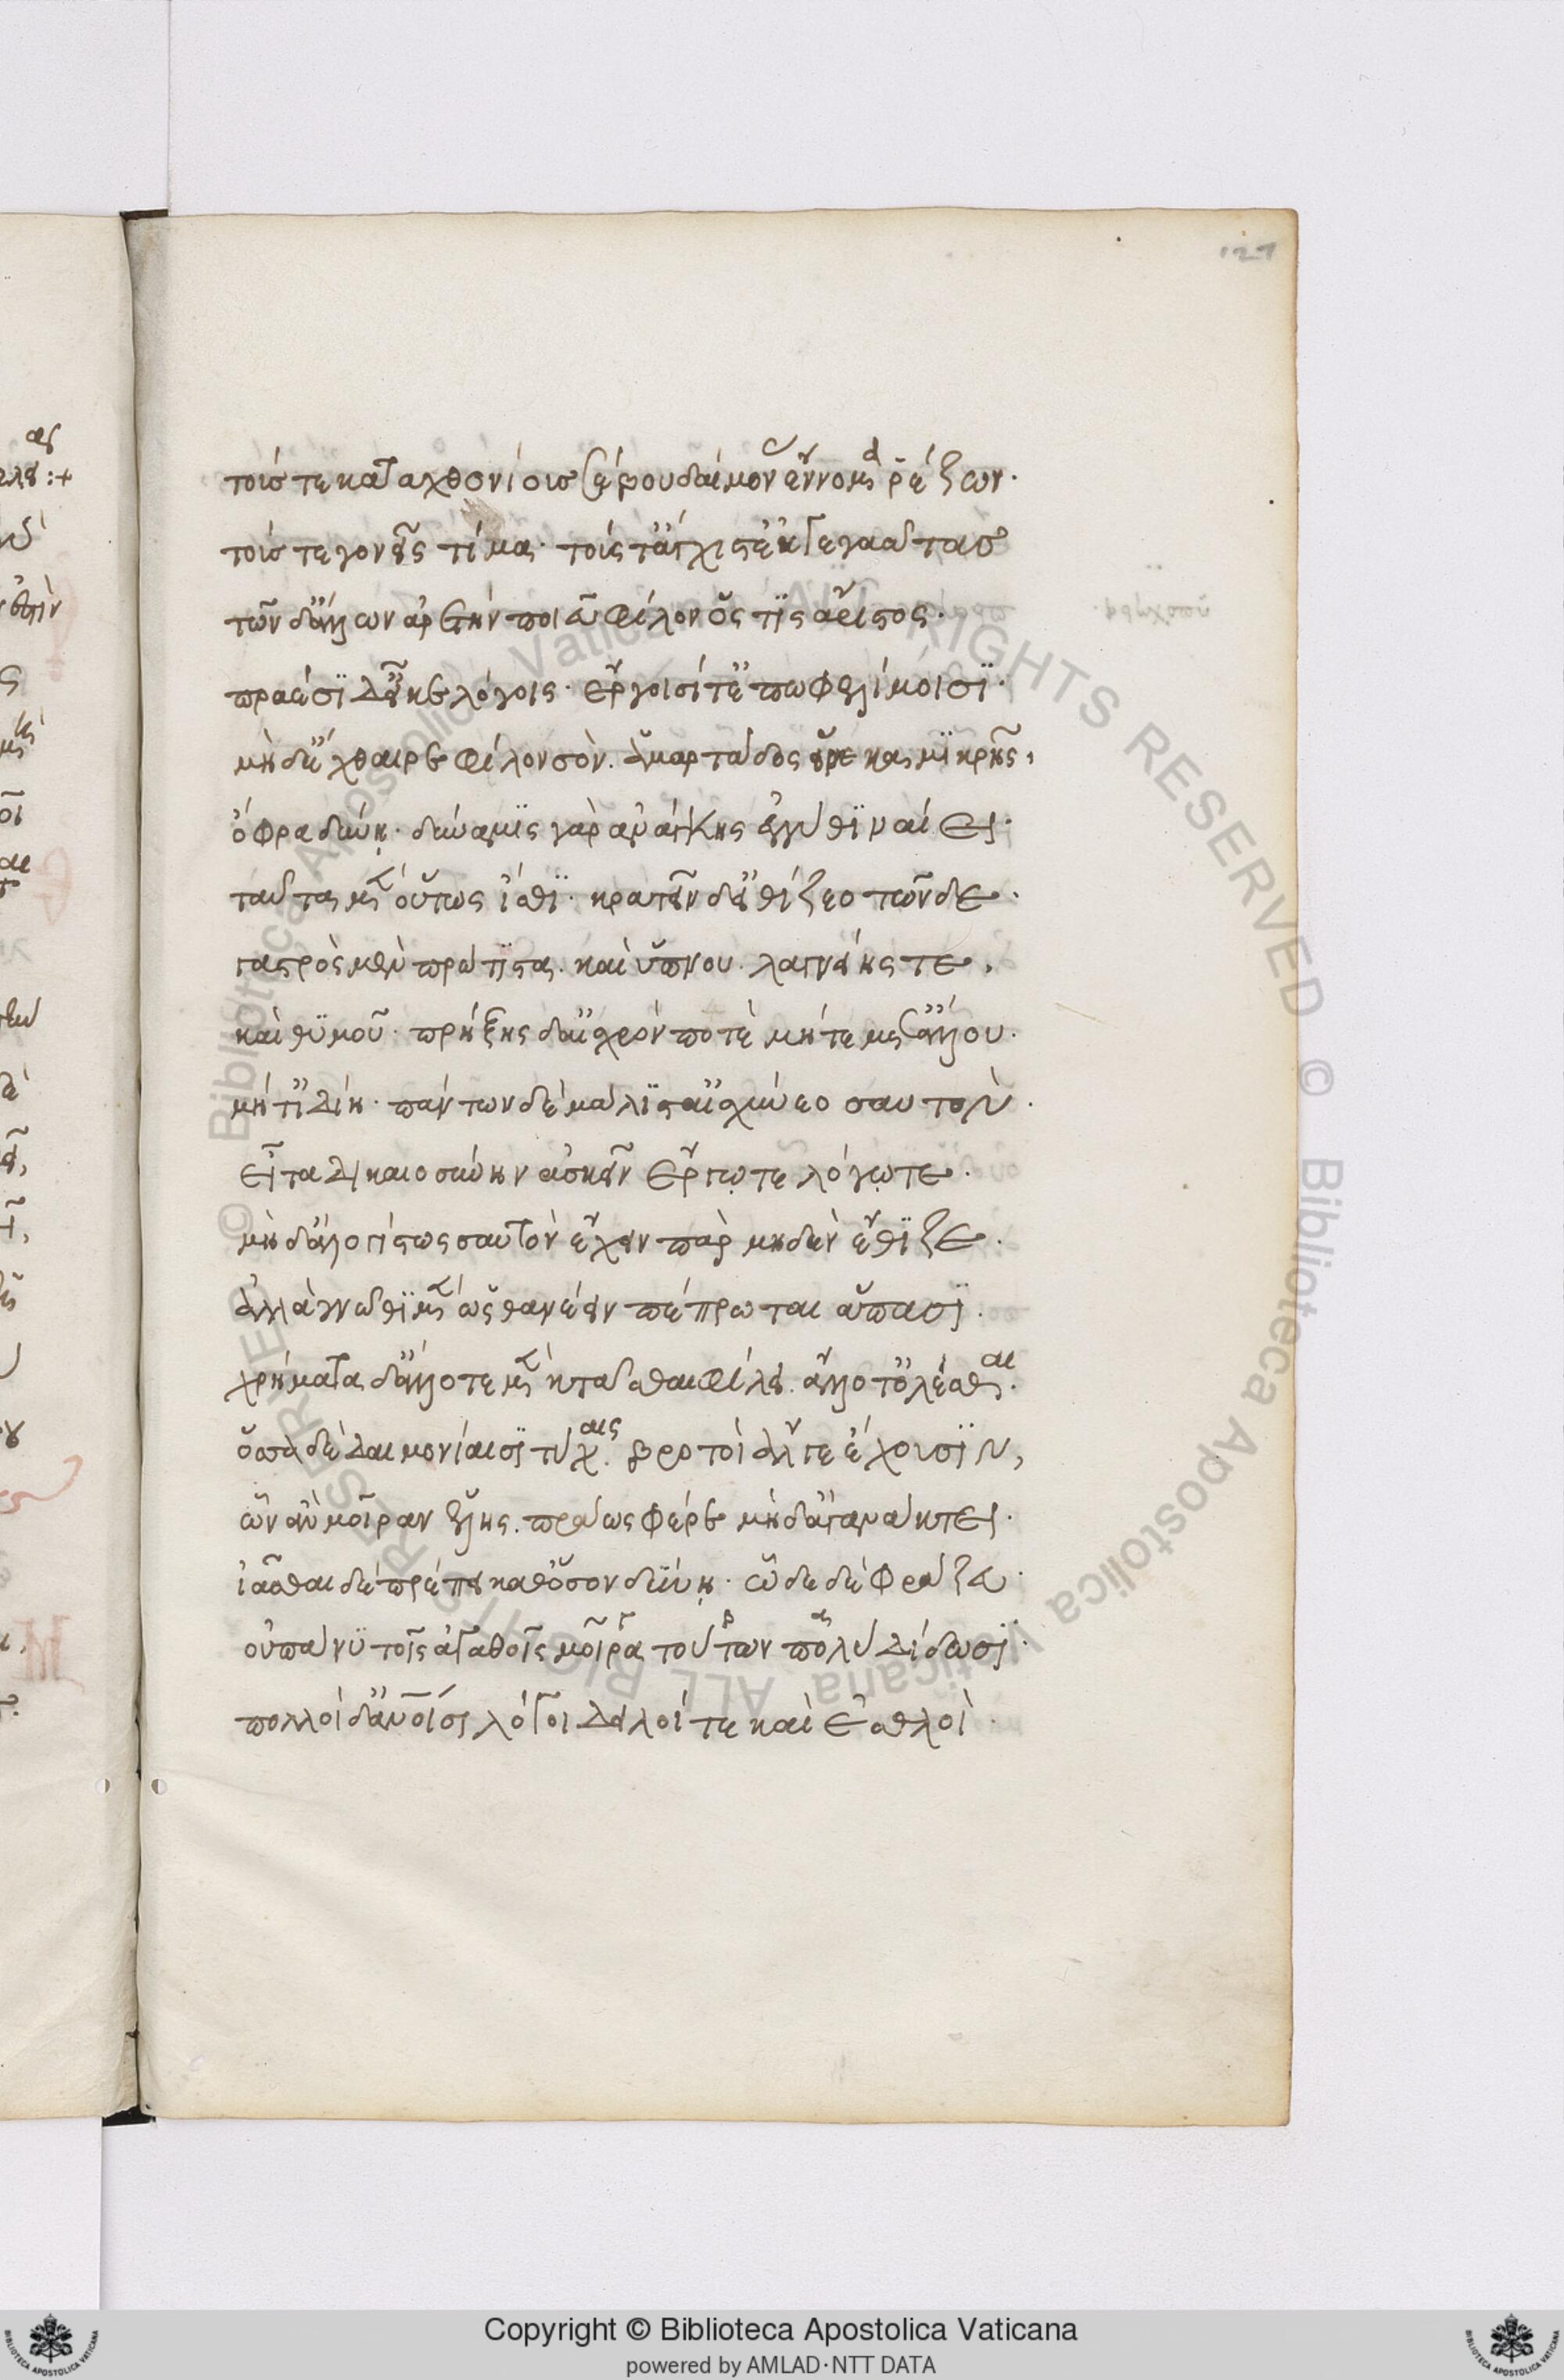 127
τοῖς τε καταχθονίοις σέβου δαίμονας ἔννομα ῥέζων·
τοῖς τε γονεῖς τίμα· τοῖς τ᾽ ἄγχιστ᾽ ἐκγεγαῶτας
τῶν δ᾽ ἄλλων ἀρετὴν ποιεῦ φίλον ὅς τις ἄριστος·
πραέσι δ᾽ εἶκε λόγοις· ἔργοισί τ᾽ ἐπωφελίμοισι·
μηδ᾽ ἔχθαιρε φίλον σὸν. ἁμαρτάδος εἵνεκα μικρῆς,
ὄφρα δύνῃ· δύναμις γὰρ ἀνάγκης ἐγγύθι ναίει·
ταῦτα μὲν οὕτως ἴσθι· κρατεῖν δ᾽ εἰθίζεο τῶνδε·
γαστρὸς μὲν πρώτιστα. καὶ ὕπνου. λαγνείης τε,
καὶ θυμοῦ· πρήξῃς δ᾽ αἰσχρόν ποτε μήτε μετ᾽ ἄλλου·
μήτ᾽ ἰδίῃ· πάντων δὲ μάλιστ᾽ αἰσχύνεο σαυτόν·
εἶτα δικαιοσύνην ἀσκεῖν ἔργῳ τε λόγῳ τε·
μηδ᾽ ἀλογίστως σαυτὸν ἔχειν παρ μηδὲν ἔθιζε·
ἀλλὰ γνῶθι μὲν ὡς θανέειν πέπρωται ἅπασι·
χρήματα δ᾽ ἄλλοτε μὲν κτᾶσθαι φίλει. ἄλλοτ᾽ ὀλέσθαι·
ὅσα δὲ δαιμονίαισι τύχαις βροτοὶ ἄλγε᾽ ἔχουσιν,
ὧν ἂν μοῖραν ἕλῃς. πράως φέρε μηδ᾽ ἀγανάκτει·
ἰᾶσθαι δὲ πρέπει καθόσον δύνῃ· ὧδε δὲ φράζευ·
οὐ πάνυ τοῖς ἀγαθοῖς μοῖρα τούτων πολὺ δίδωσι·
πολλοὶ δ᾽ ἀνθρώποισι λόγοι δειλοί τε καὶ ἐσθλοὶ·
© Biblioteca Apostolica Vaticana ALL RIGHTS RESERVED
Copyright © Biblioteca Apostolica Vaticana
powered by AMLAD·NTT DATA